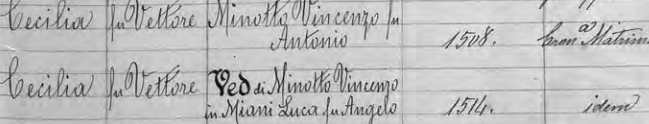 Cecilia fu Vettore Minotto Vincenzo fu
Antonio 1508. Cron.ª Matrim
Cecilia fu Vettore Ved di Minotto Vincenzo
in Miani Luca fu Angelo 1514. idem